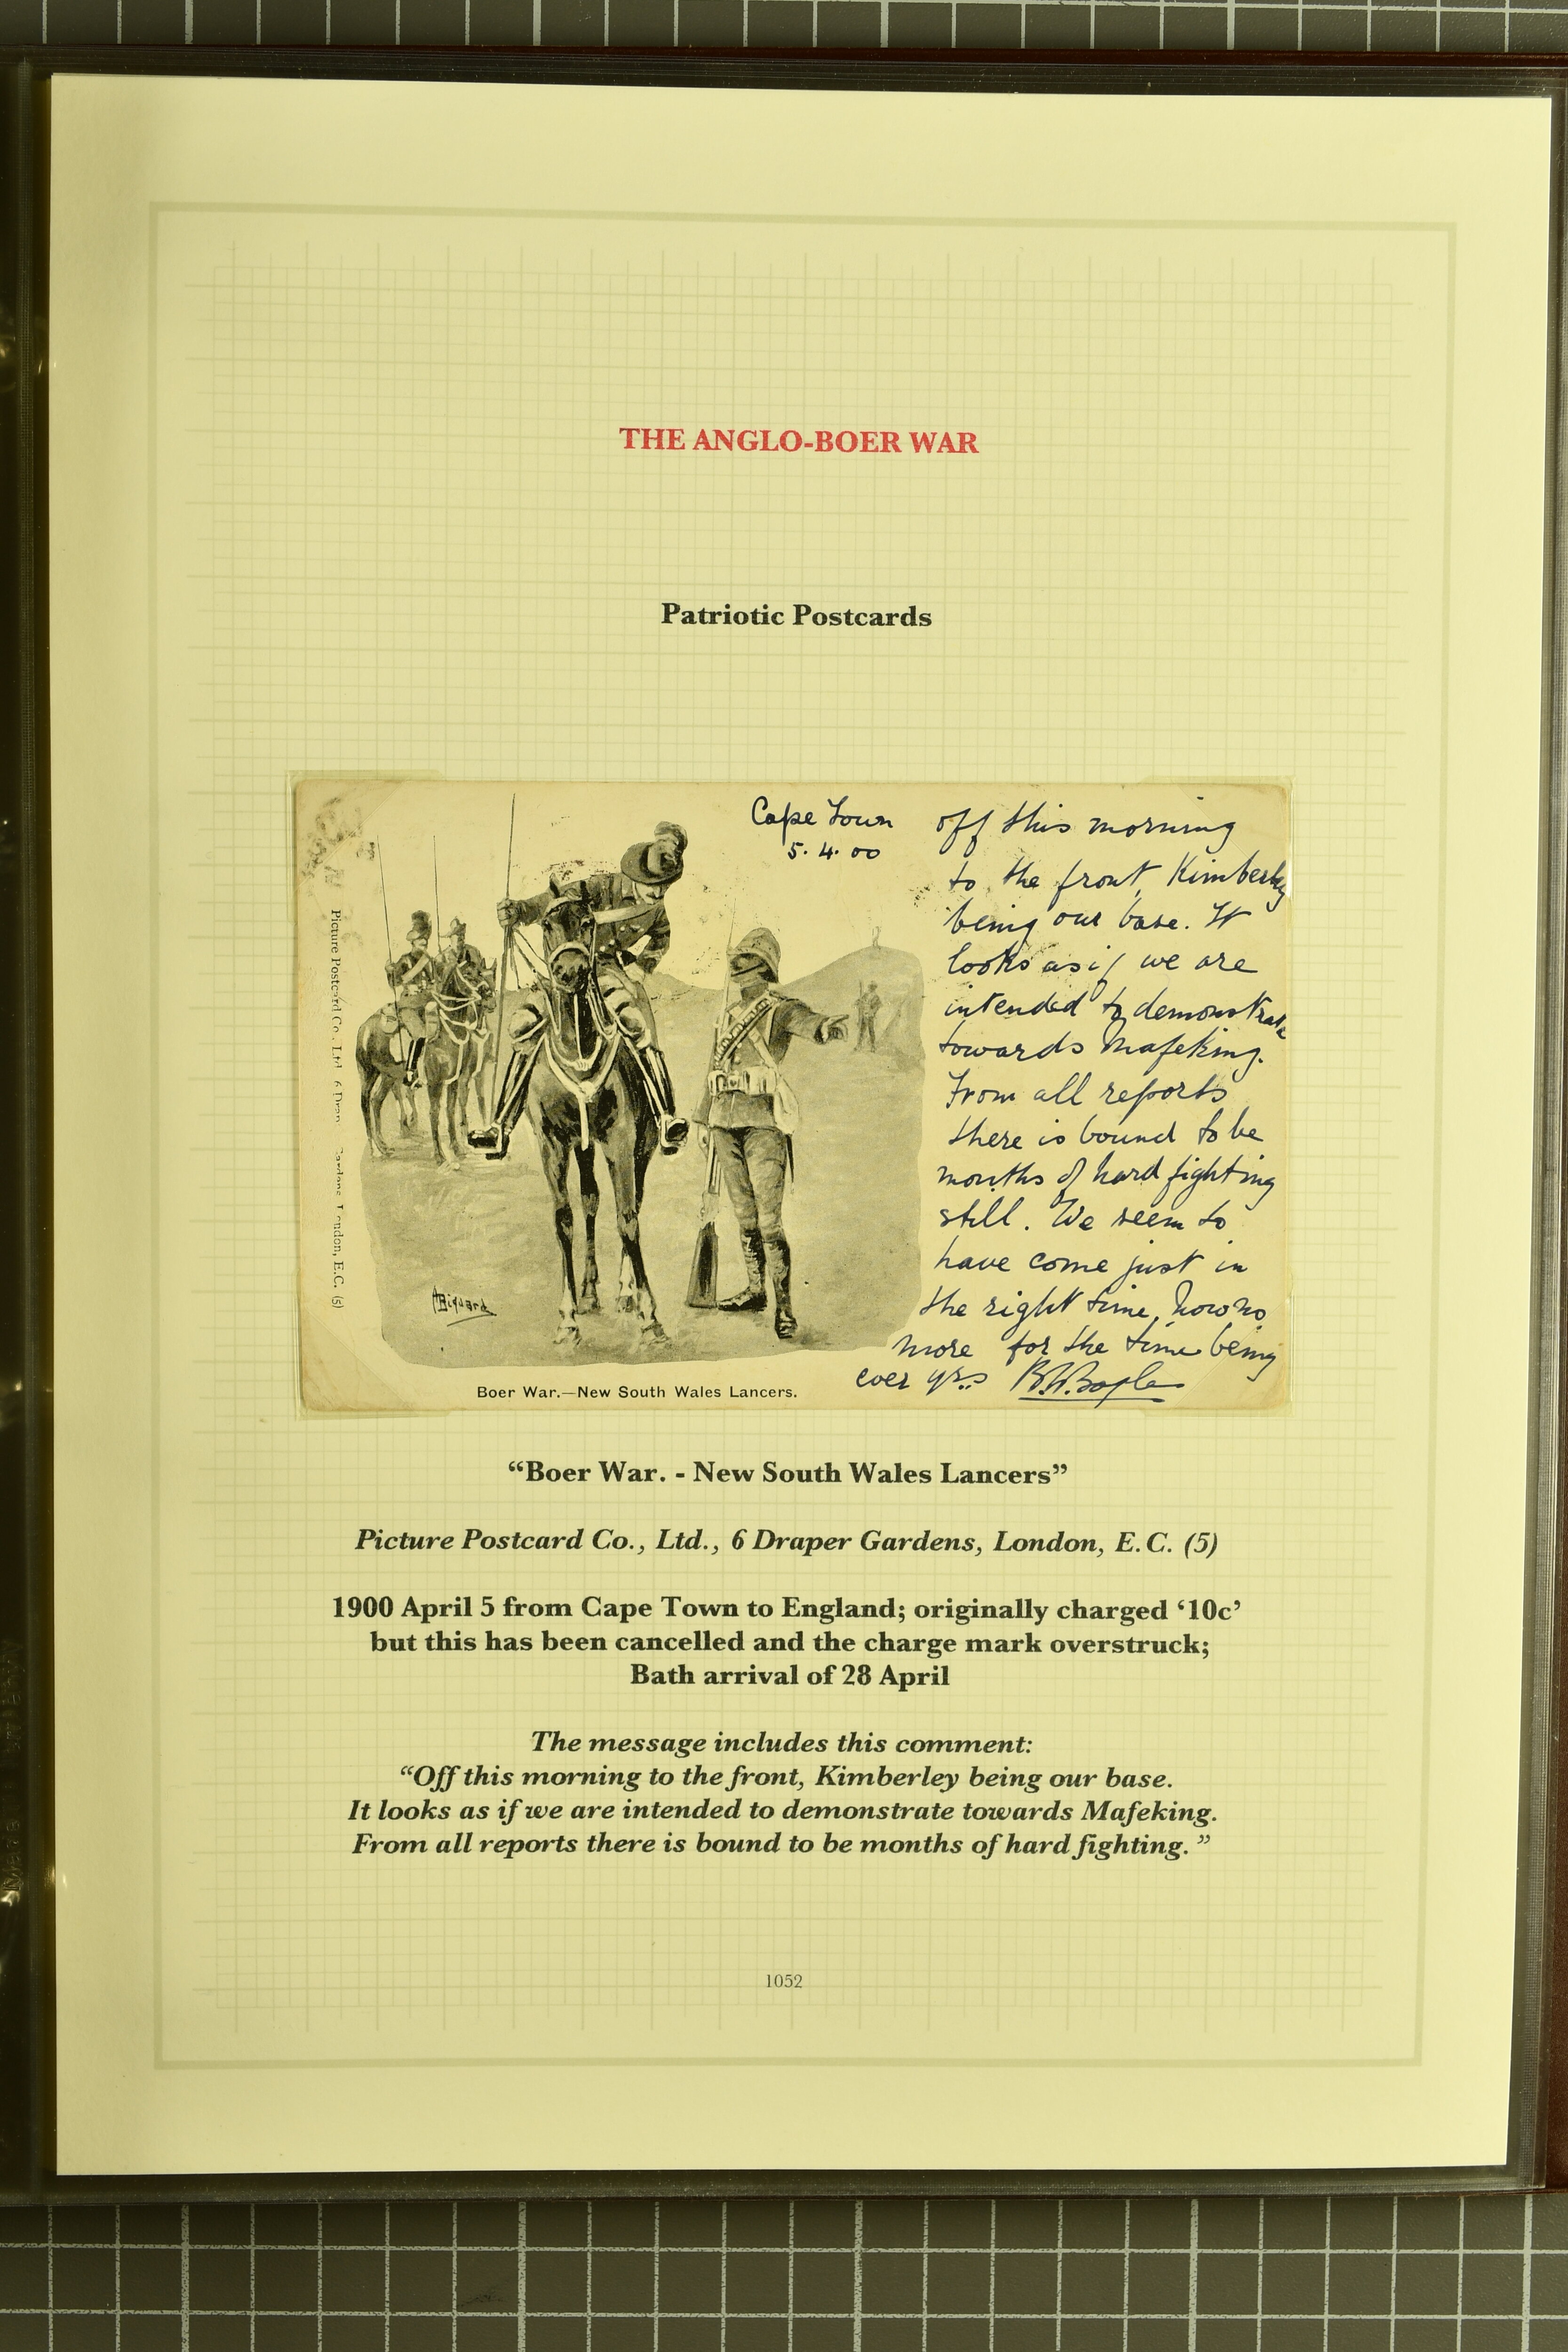 THE ANGLO-BOER WAR
Patriotic Postcards
Cape Town
5. 4. 00
off this morning
to the front, Kimberley
being our base. It
looks as if we are
intended to demonstrate
towards Mafeking.
From all reports
there is bound to be
months of hard fighting
still. We seem to
have come just in
the right time, now no
more for the time being
ever yrs
Picture Postcard Co., Ltd. 6 Drap ardens, London, E.C. (5)
Boer War.—New South Wales Lancers.
“Boer War. - New South Wales Lancers”
Picture Postcard Co., Ltd., 6 Draper Gardens, London, E.C. (5)
1900 April 5 from Cape Town to England; originally charged ‘10c’
but this has been cancelled and the charge mark overstruck;
Bath arrival of 28 April
The message includes this comment:
“Off this morning to the front, Kimberley being our base.
It looks as if we are intended to demonstrate towards Mafeking.
From all reports there is bound to be months of hard fighting.”
1052